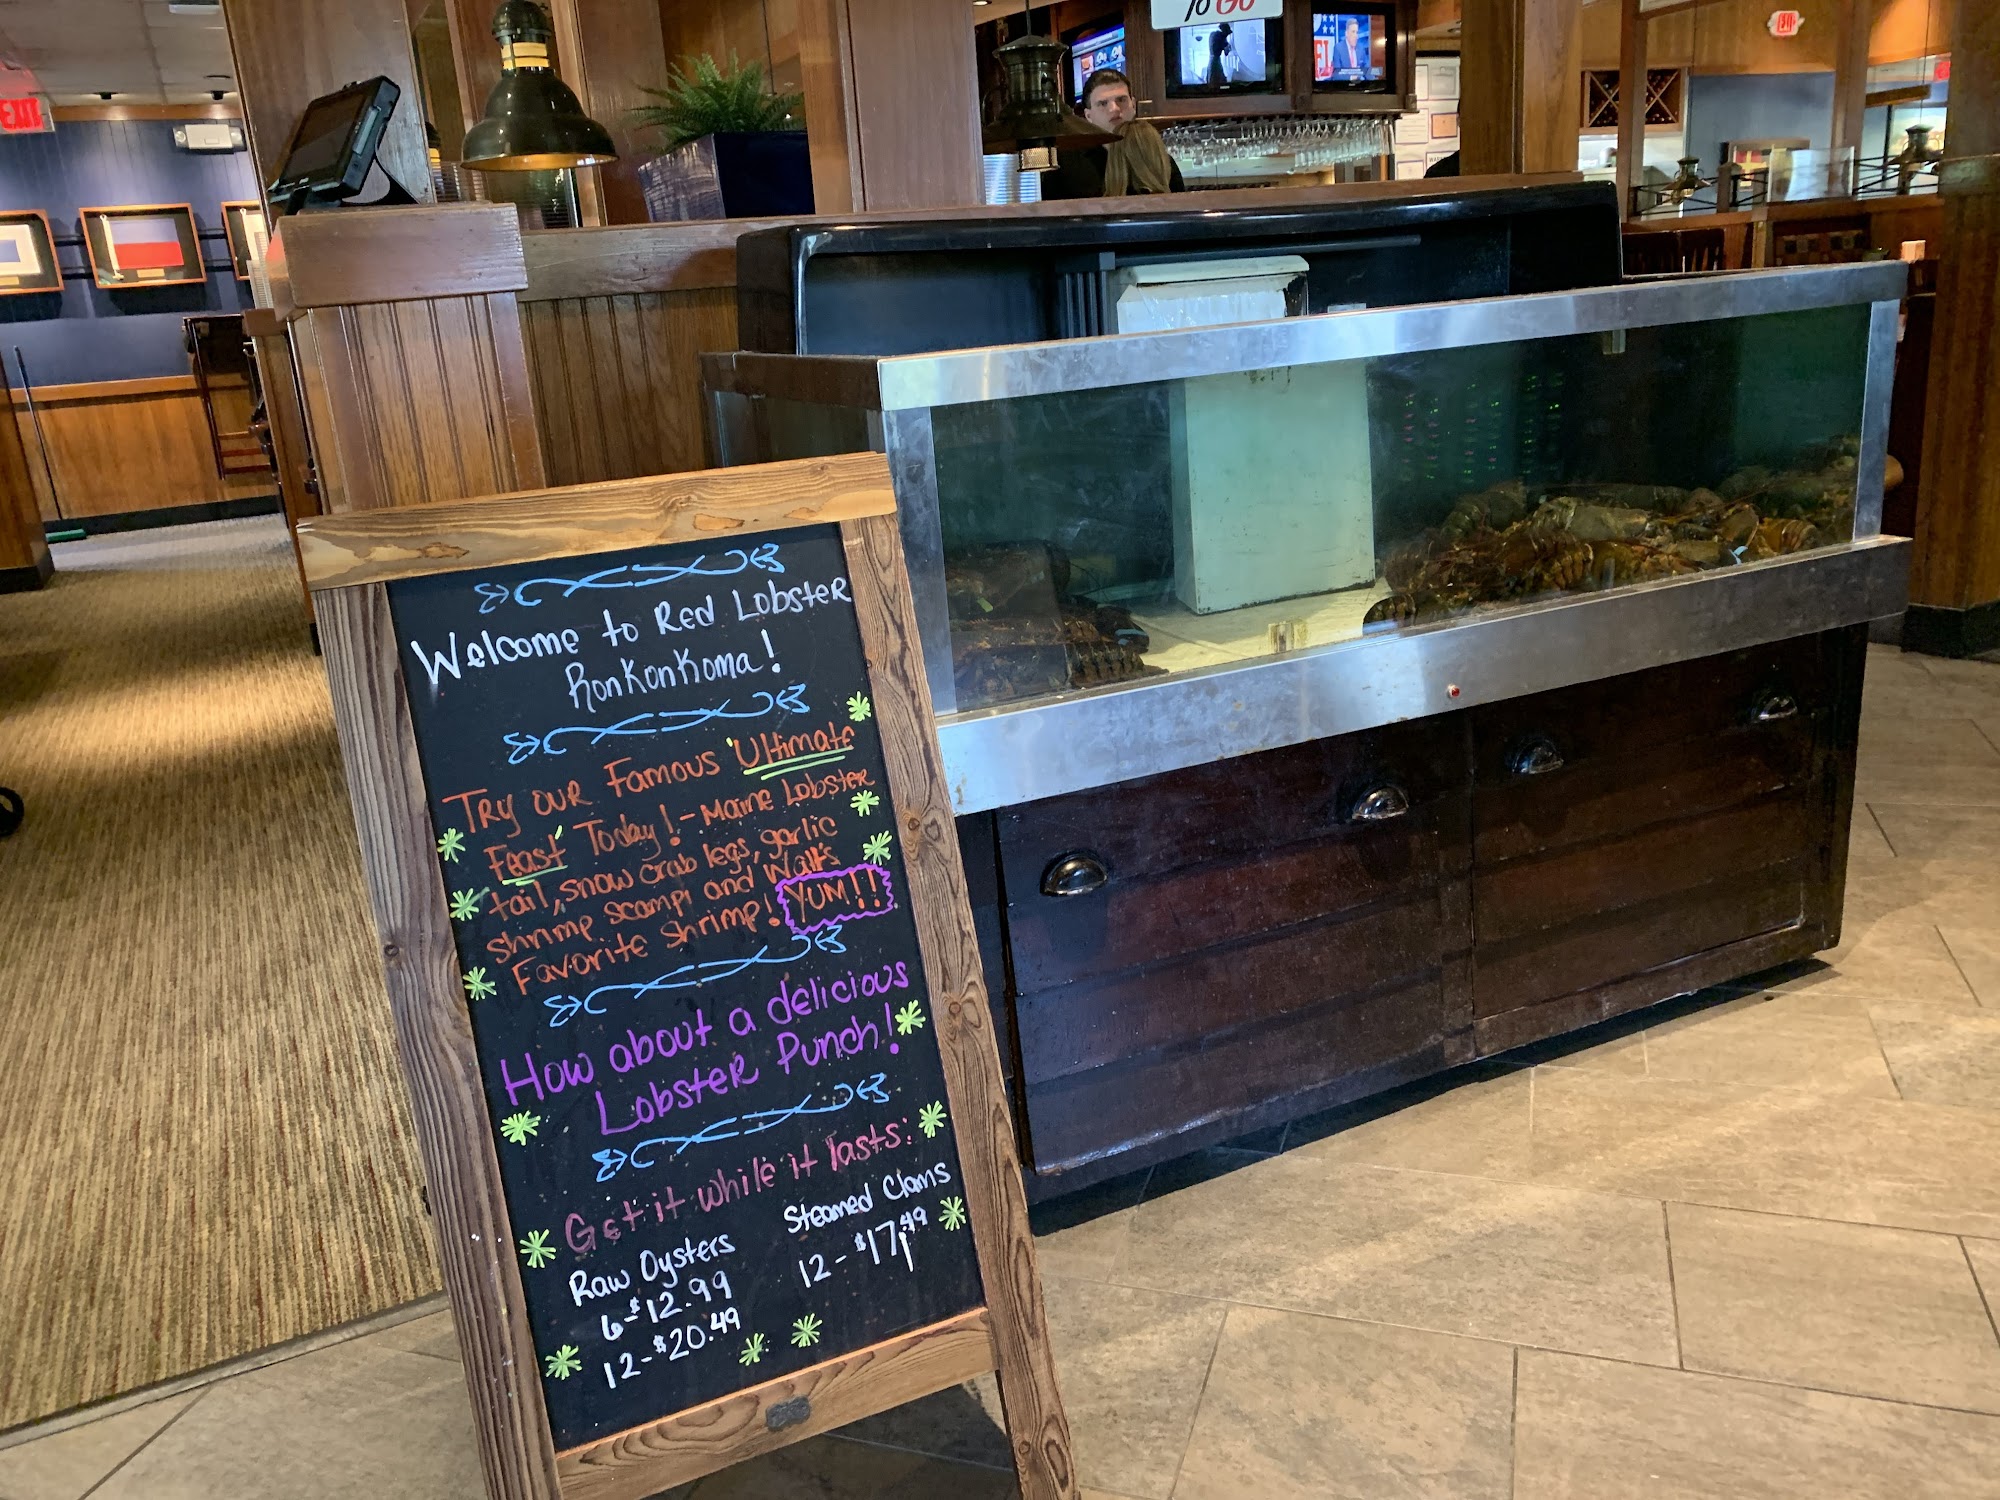 To Go
EXIT
EXIT
Welcome to Red Lobster
Ronkonkoma!
Try our Famous Ultimate
Feast Today! - Maine Lobster
tail, snow crab legs, garlic
shrimp scampi and Walt's
Favorite shrimp! YUM!!
How about a delicious
Lobster Punch!
Get it while it lasts:
Raw Oysters
6-$12.99
12-$20.49
Steamed Clams
12-$17.49